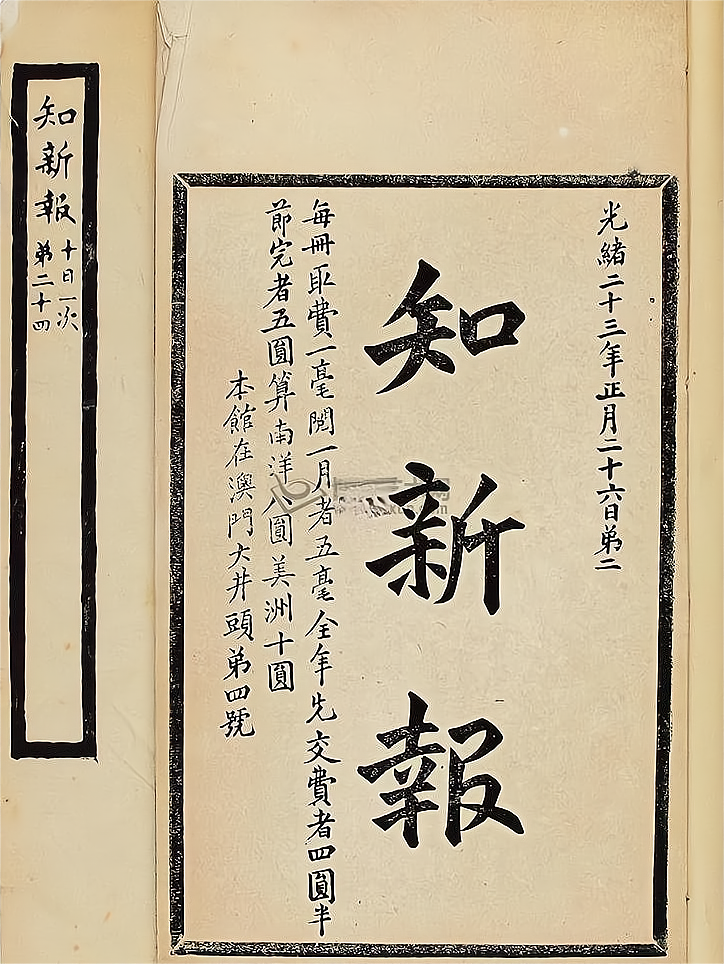 光緒二十三年正月二十六日弟二
知新報
每冊取費一毫閱一月者五毫全年先交費者四圓半
節完者五圓算南洋八圓美洲十圓
本館在澳門大井頭弟四號
知新報
十日一次
弟二十四